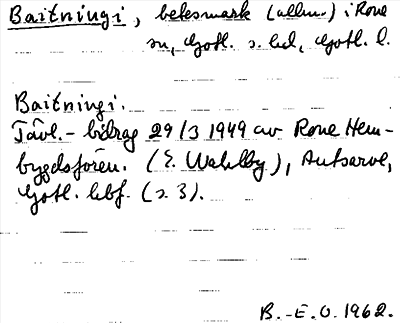 Baitningi, betesmark (allm.) i Rone
sn, Gotl. s. hd, Gotl. l.
Baitningi.
Tävl.-bidrag 29/3 1949 av Rone Hem-
bygdsfören. (E. Wahlby), Autsarve,
Gotl. hbf. (s. 3).
B.-E. O. 1962.